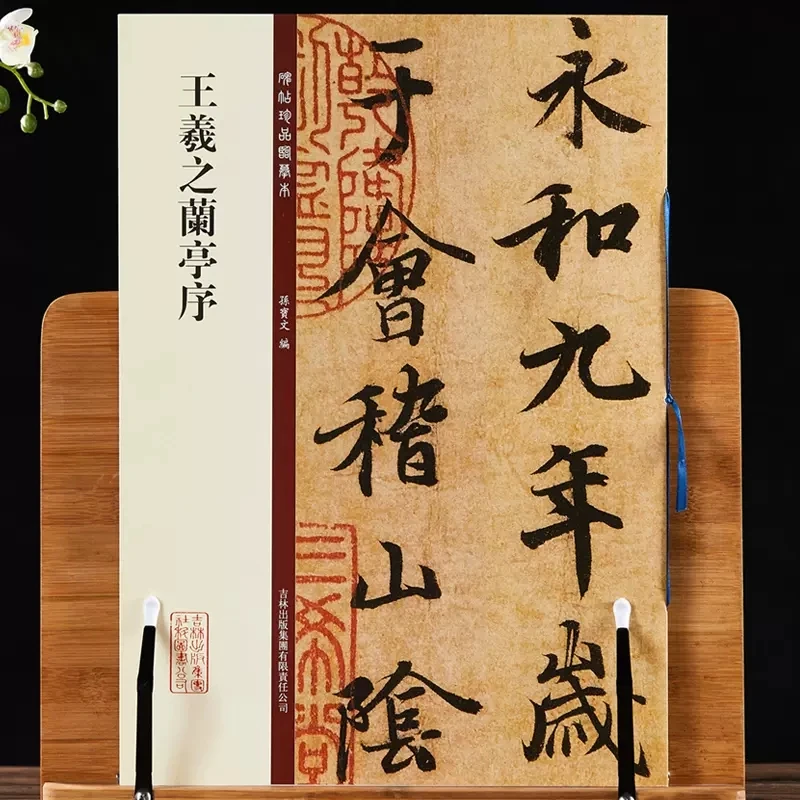 永和九年歲
于會稽山陰
碑帖珍品臨摹本
孫寶文 編
吉林出版集團有限責任公司
王羲之蘭亭序
三希堂